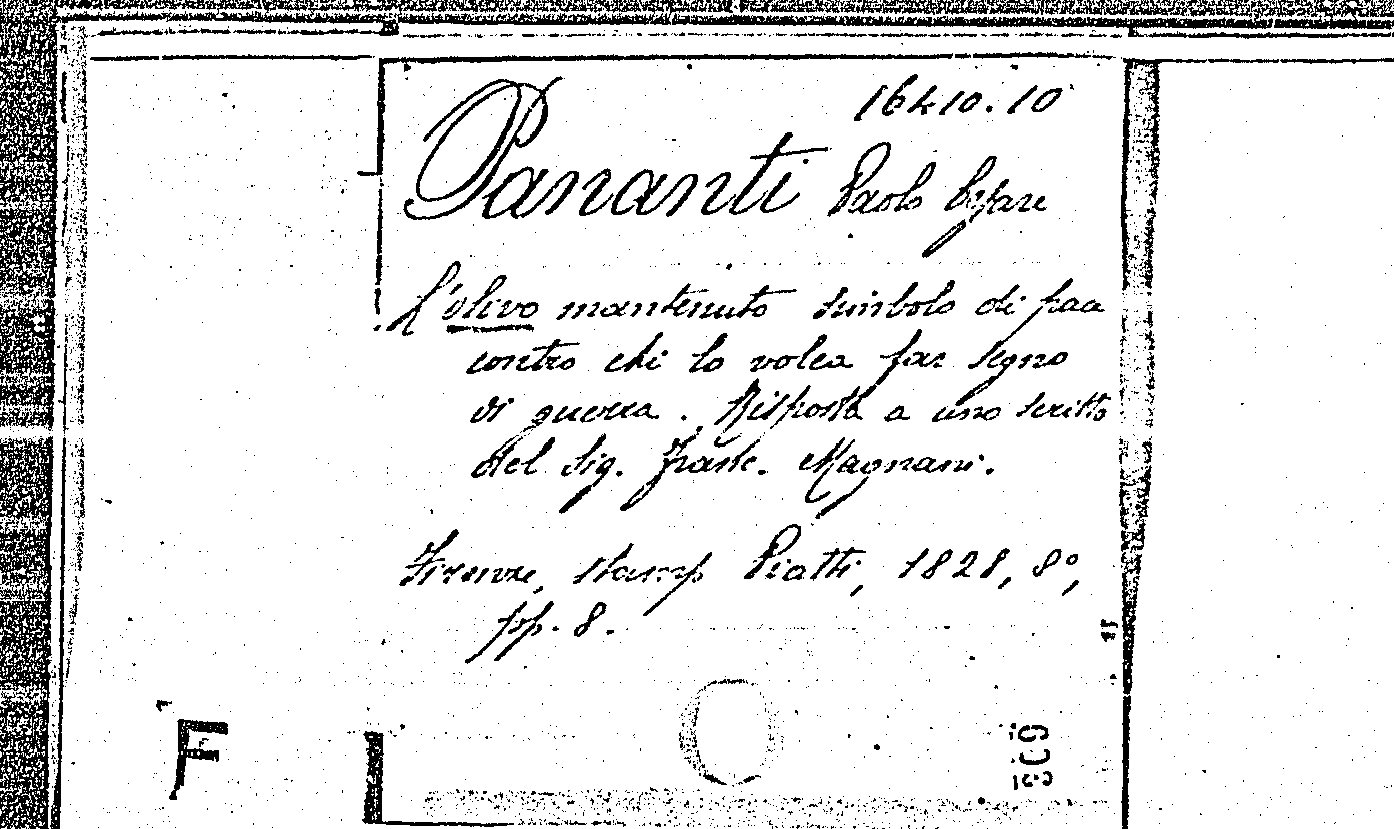 16410.10
Pananti Paolo Cesare
L'olivo mantenuto simbolo di pace
contro chi lo volea far segno
di guerra. Risposta a uno scritto
del Sig. Franc. Magnani.
Firenze, stamp Piatti, 1828, 8°,
pp. 8.
F